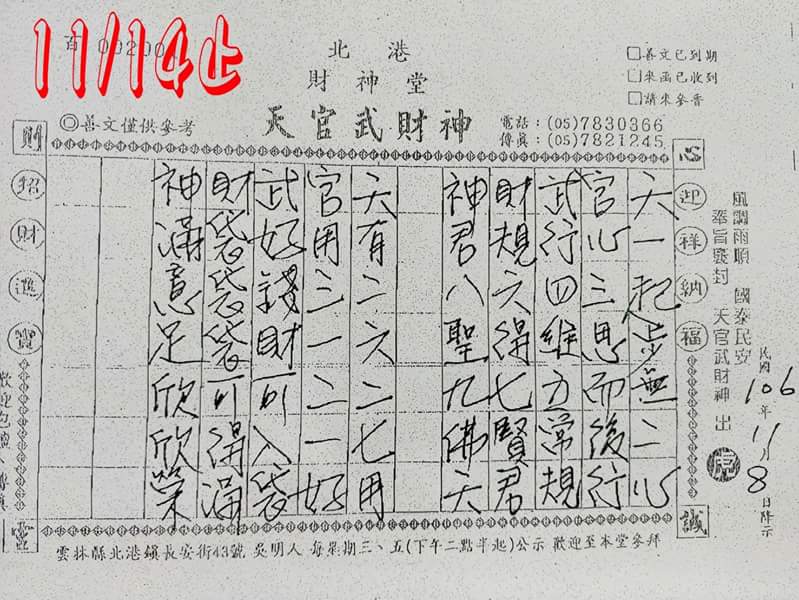 11/14止
北港
財神堂
天官武財神
◎善文僅供參考
□善文已到期
□來函已收到
□請來參香
電話：(05)7830366
傳真：(05)7821245
心
誠
迎祥納福
風調雨順 國泰民安
奉旨褒封 天官武財神 出
民國106年11月8日降示
天一起步無二心
官心三思而後行
武行四維五常規
財規六得七賢君
神君八聖九佛天
天有二六二七用
官用三一二一好
武好錢財可入袋
財袋袋袋可得滿
神滿意足欣欣榮
財
招財進寶
雲林縣北港鎮長安街43號 吳明人 每星期三、五(下午二點半起)公示 歡迎至本堂參拜